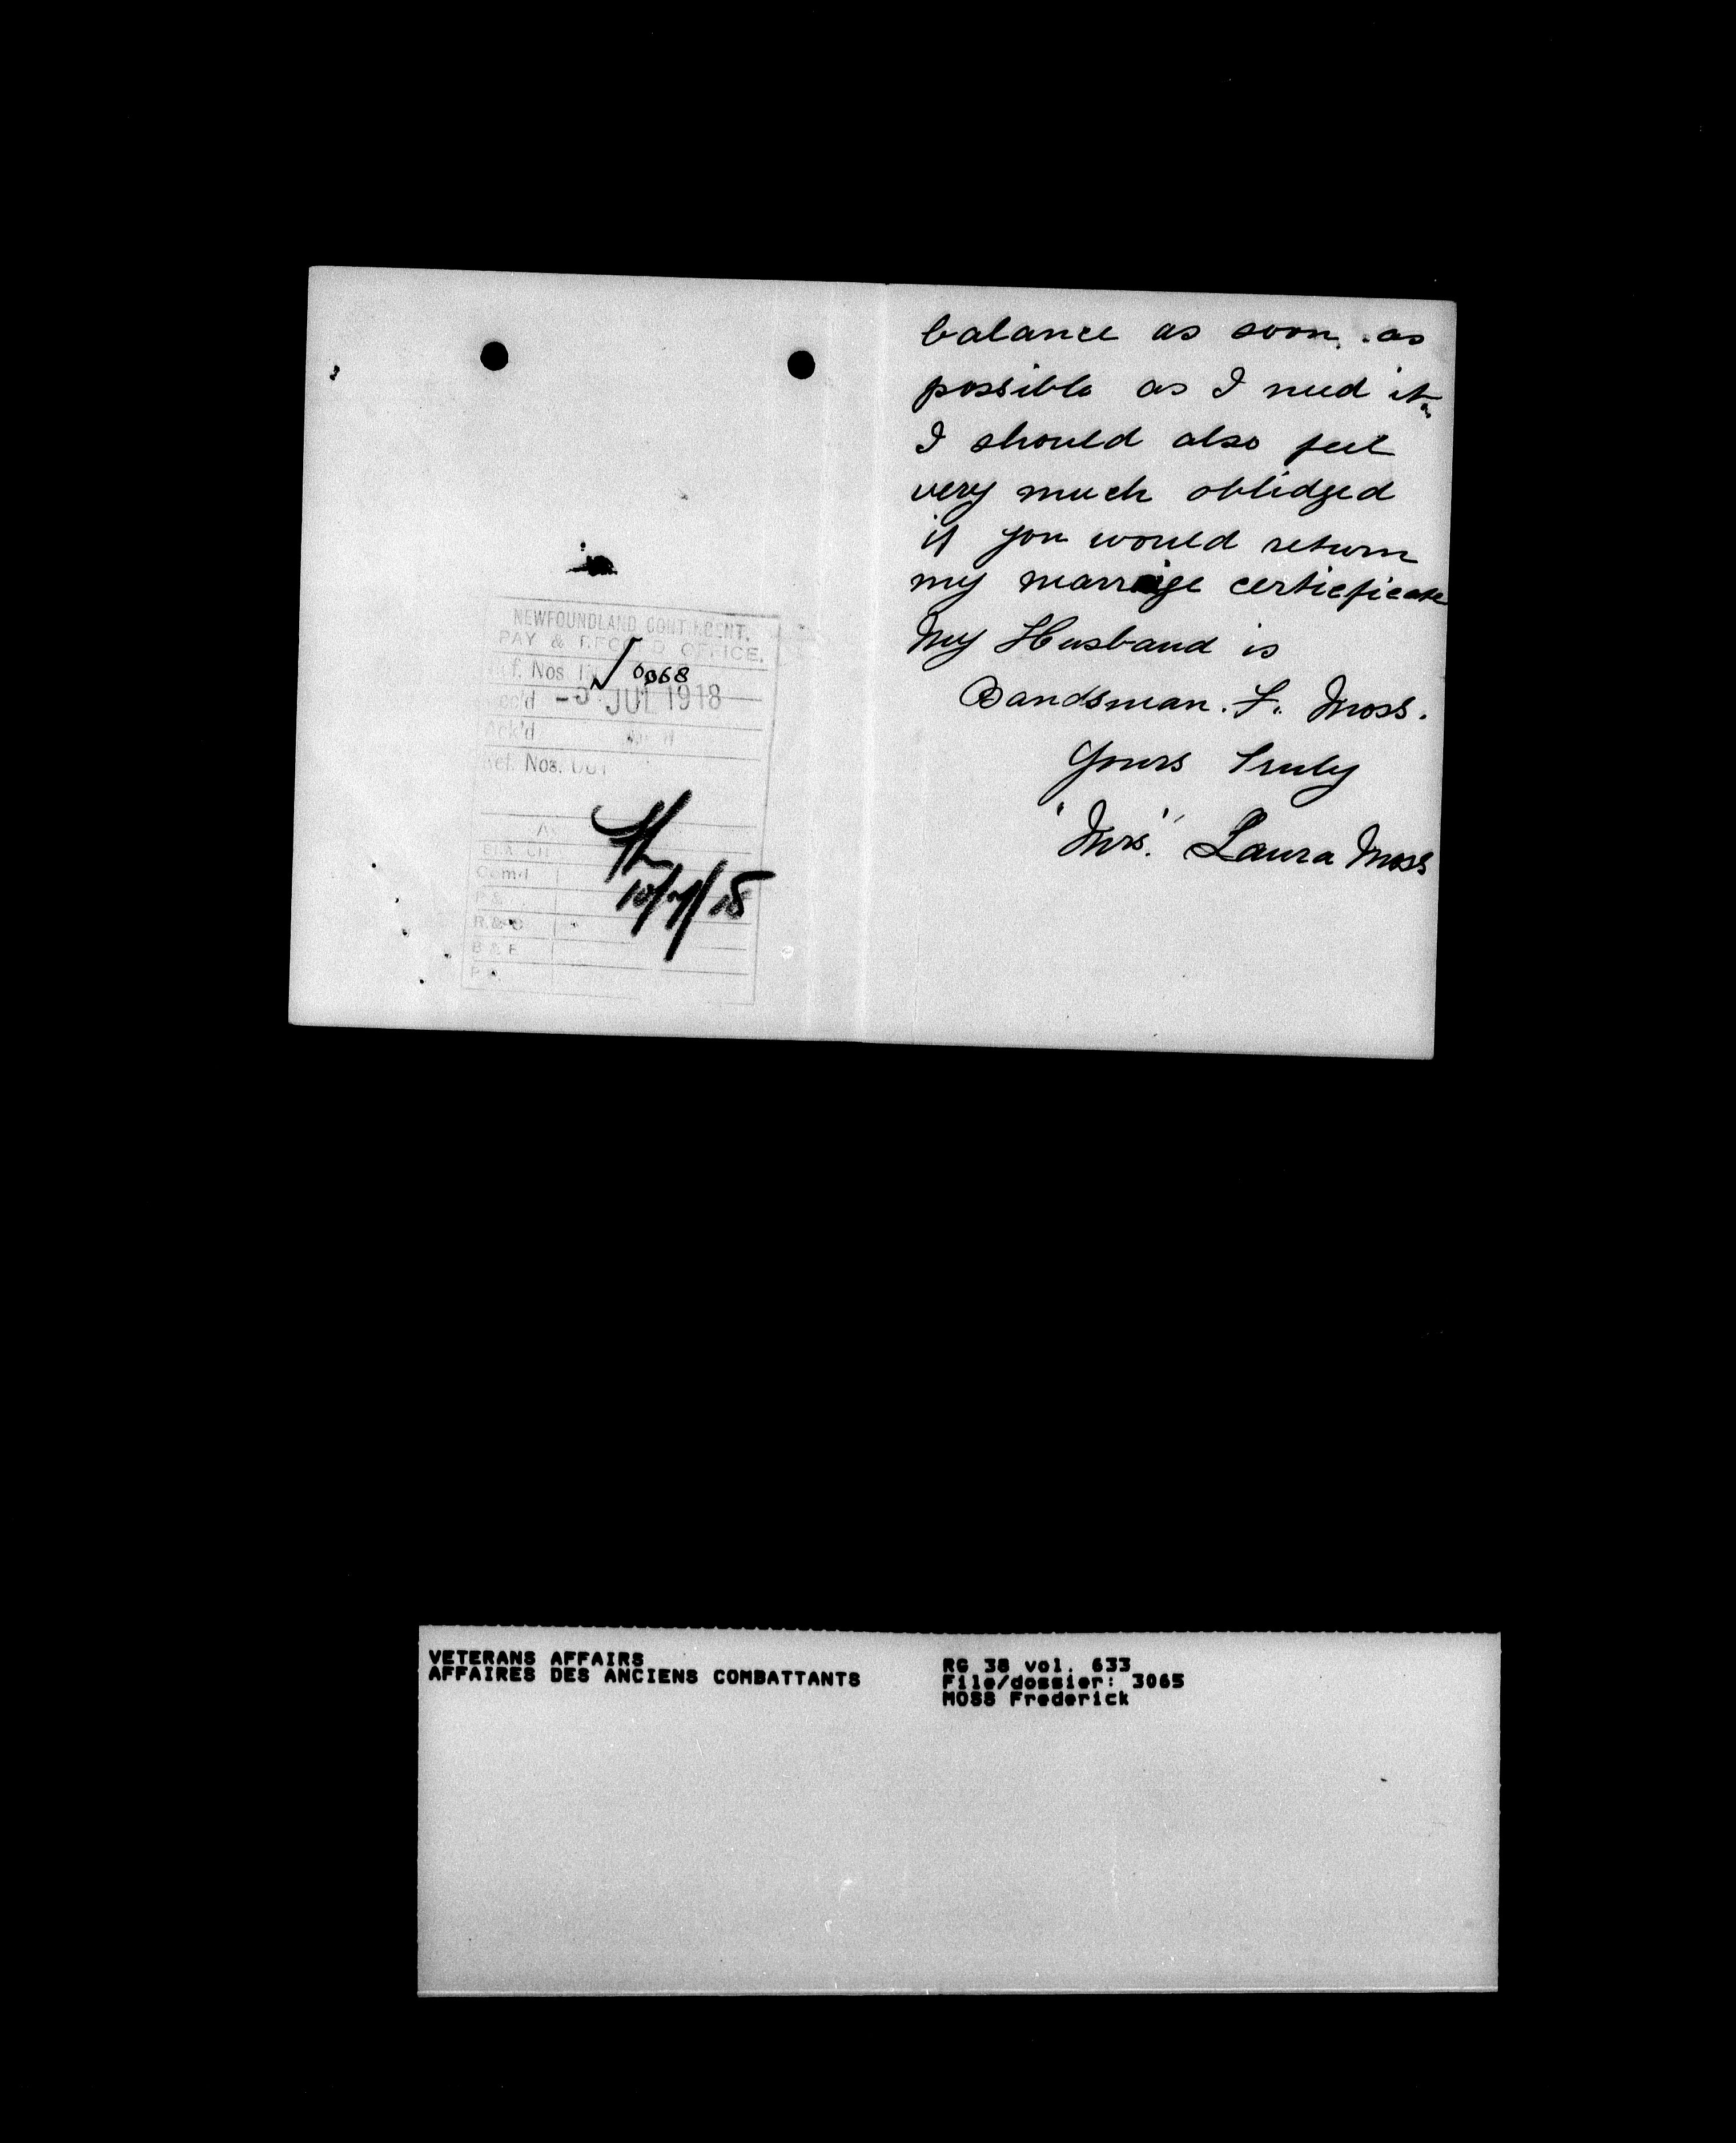 NEWFOUNDLAND CONTINGENT.
PAY & RECORD OFFICE.
Nos
0068
JUL 1918
Ack'd
Ref. Nos.
10/7/18
Com'd
R. & C
B & F
balance as soon as
possible as I need it.
I should also feel
very much oblidged
if you would return
my marraige certieficate
My Husband is
Bandsman. F. Moss.
Yours Truly
"Mrs." Laura Moss
VETERANS AFFAIRS
AFFAIRES DES ANCIENS COMBATTANTS
RG 38 vol. 633
File/dossier: 3065
MOSS Frederick